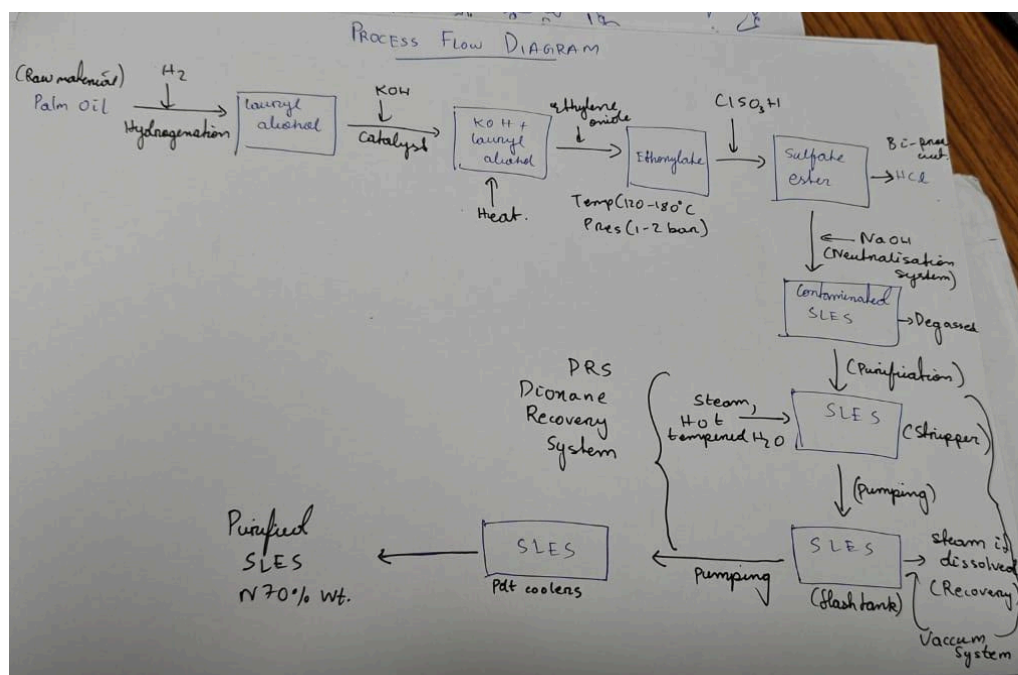 PROCESS FLOW DIAGRAM
(Raw material)
Palm Oil
H2
Hydrogenation
Lauryl
alcohol
KOH
Catalyst
KOH +
lauryl
alcohol
Heat.
ethylene
oxide
Ethoxylate
Temp(120-180°C
Pres(1-2 bar)
ClSO3H
Sulfate
ester
Bi-product.
HCl
NaOH
(Neutralisation
system)
Contaminated
SLES
Degassed
(Purification)
DRS
Dioxane
Recovery
System
Steam,
Hot
tempered H2O
SLES
(Stripper)
(pumping)
SLES
(flash tank)
steam is
dissolved
(Recovery)
Vaccum
System
Pumping
SLES
Pdt coolers
Purified
SLES
N70% wt.